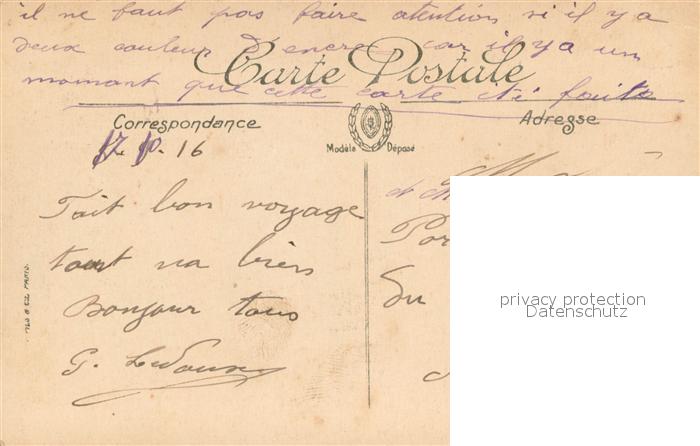 il ne faut pas faire atention si il y a
deux couleur d'encre car il y a un
momant que cette carte été faite
Carte Postale
Correspondance
Adresse
Modèle Déposé
10. 16
Fait bon voyage
tout va bien
Bonjour tous
G.
M
et M
Por
Du
& CIE PARIS.
privacy protection
Datenschutz